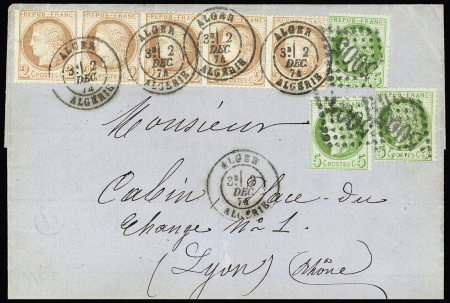 REPUB. FRANC. REPUB. FRANC. REPUB. FRANC.
2 POSTES 2 POSTES
REPUB. FRANC.
ALGER ALGER ALGER ALGER
3E/ 2 DEC. 74 3E/ 2 DEC. 74 3E/ 2 DEC. 74 3E/ 2 DEC. 74
ALGERIE ALGERIE ALGERIE ALGERIE
5005
5 POSTES 5 5 5
Monsieur
ALGER
3E/
DEC.
74
ALGERIE
Cabin, Place du
Change No 1.
(Lyon) (Rhône)